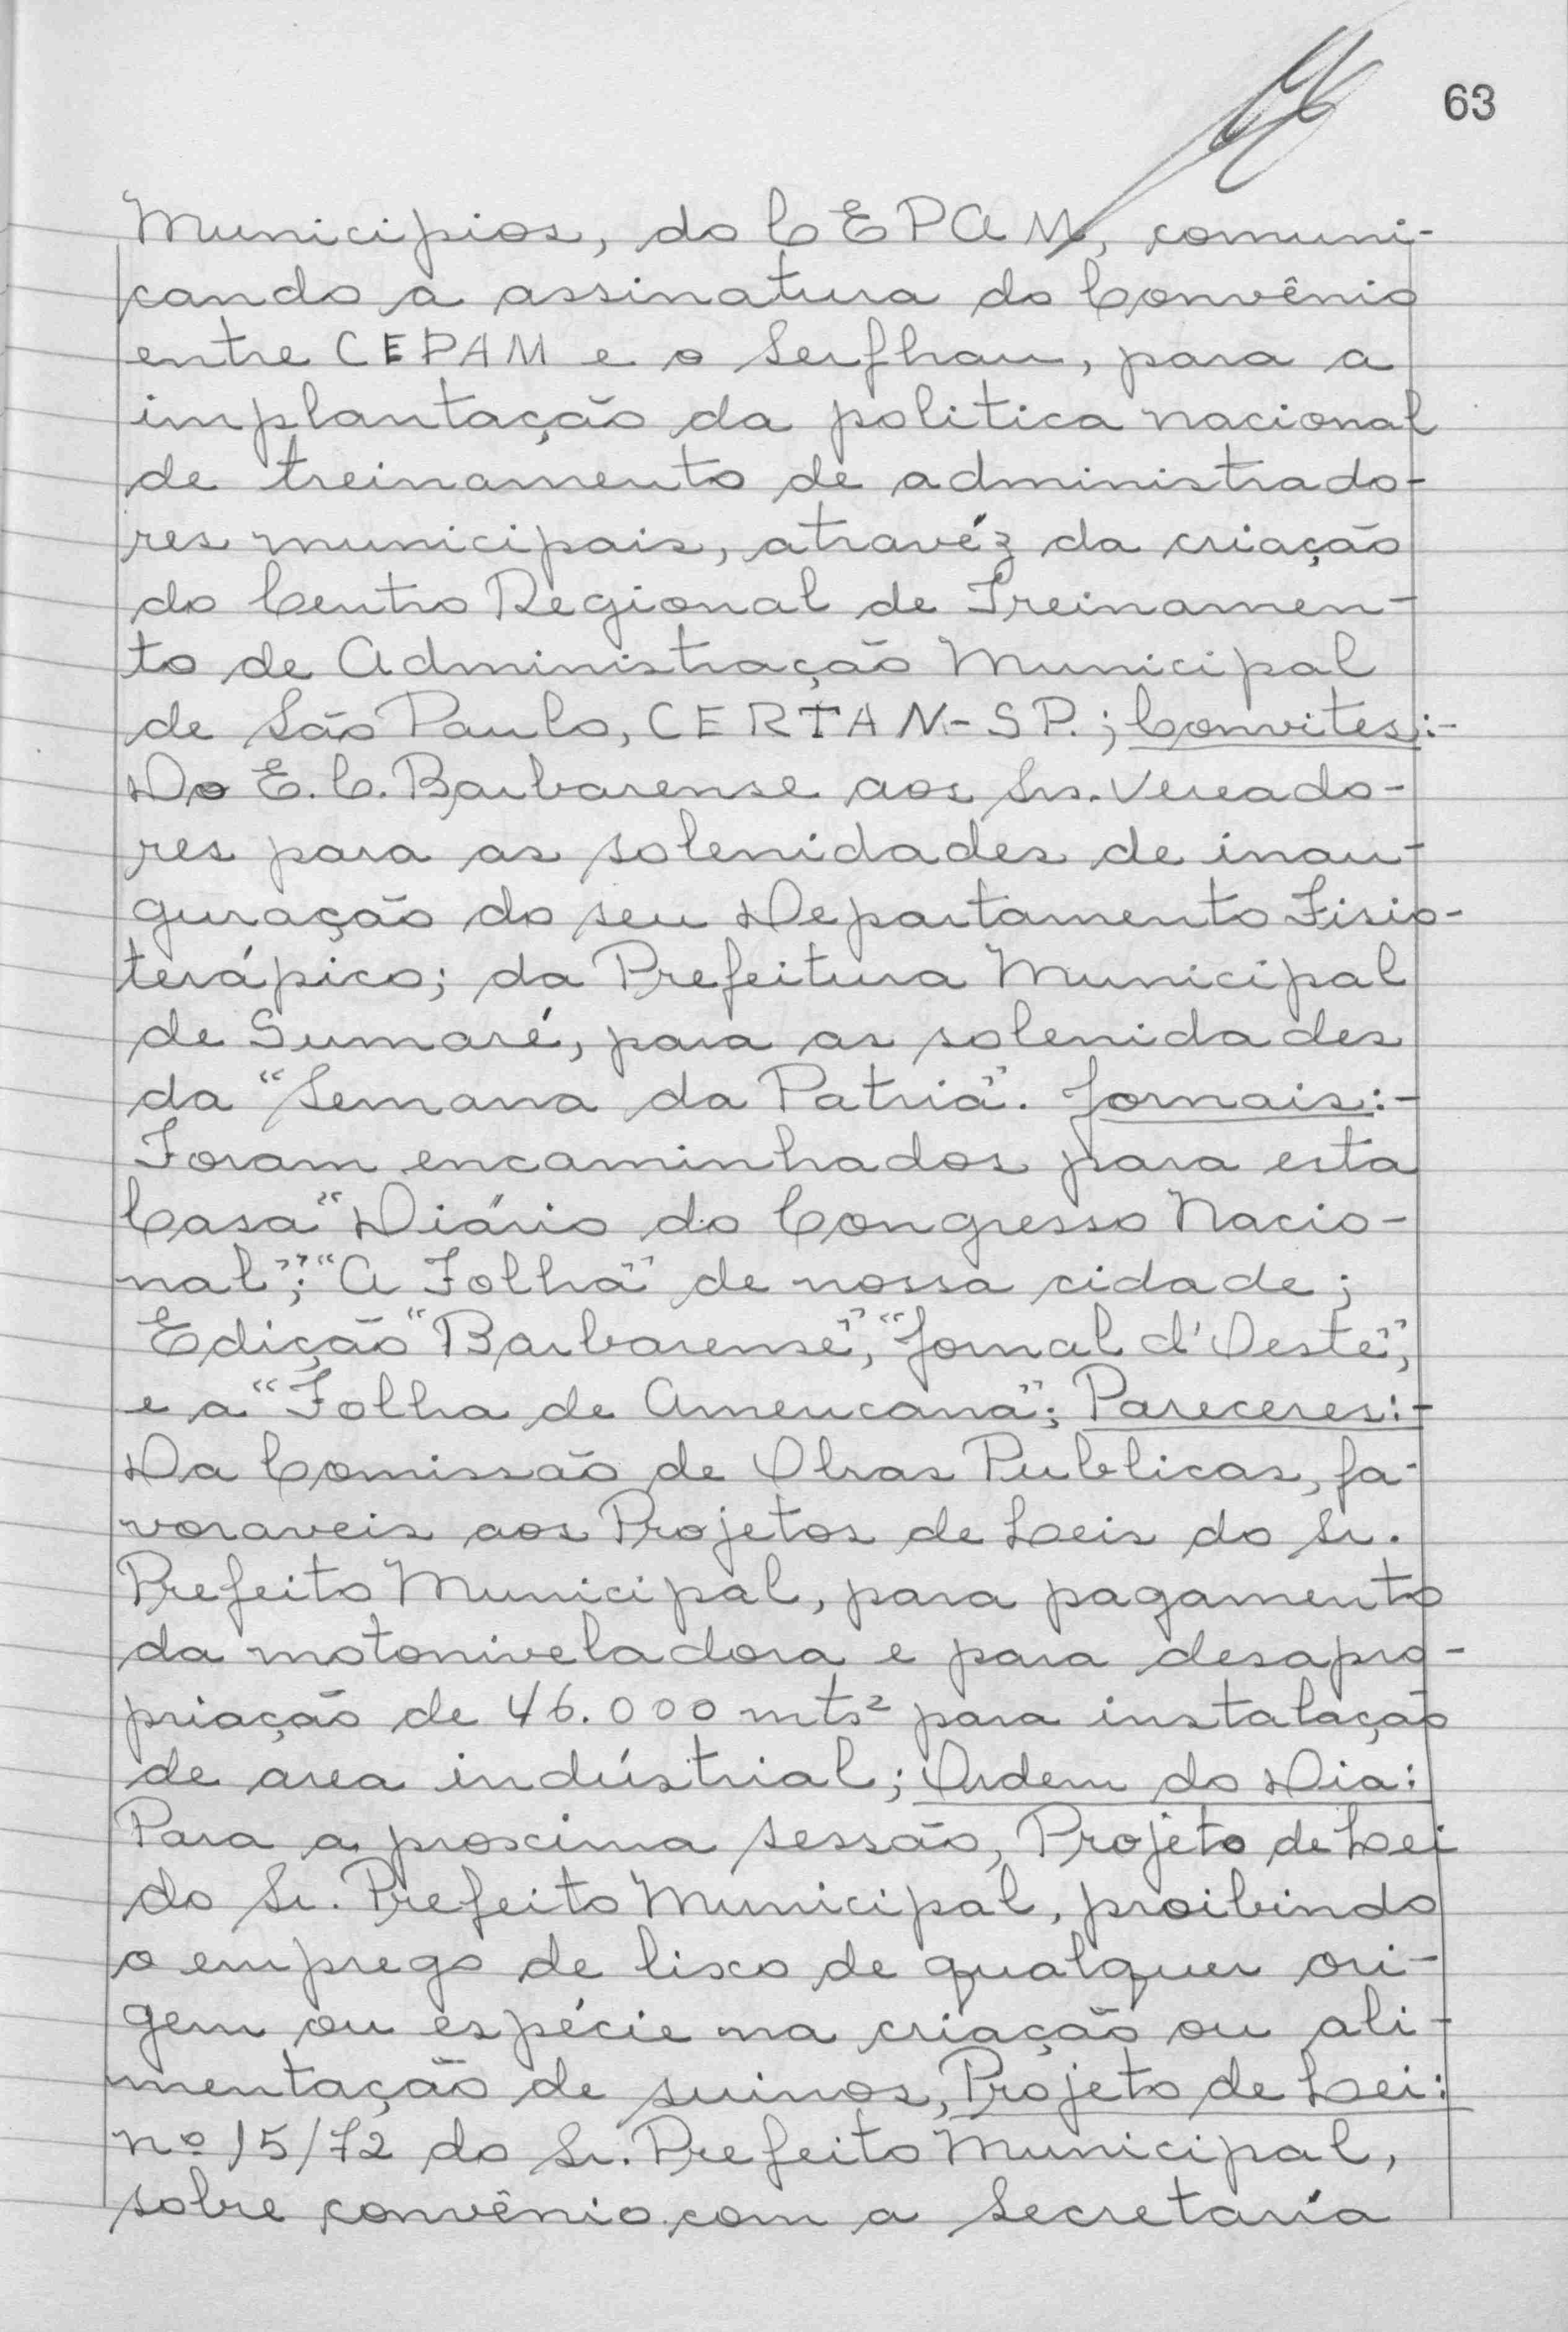 63
Municipios, do CEPAM, comuni-
cando a assinatura do Convênio
entre CEPAM e o Serfhau, para a
implantação da politica nacional
de treinamento de administrado-
res municipais, atravéz da criação
do Centro Regional de Treinamen-
to de Administração Municipal
de São Paulo, CERTAN-SP.; Convites:-
Do E.C. Barbarense aos Srs. Vereado-
res para as solenidades de inau-
guração do seu Departamento Fisio-
terápico; da Prefeitura Municipal
de Sumaré, para as solenidades
da "Semana da Patria". Jornais:-
Foram encaminhados para esta
Casa "Diário do Congresso Nacio-
nal"; "A Folha" de nossa cidade;
Edição "Barbarense", "Jornal d'Oeste",
e a "Folha de Americana"; Pareceres:-
Da Comissão de Obras Publicas, fa-
voraveis aos Projetos de Leis do Sr.
Prefeito Municipal, para pagamento
da motoniveladora e para desapro-
priação de 46.000 mts² para instalação
de area indústrial; Ordem do Dia:
Para a proxima sessão, Projeto de Lei
do Sr. Prefeito Municipal, proibindo
o emprego de lixo de qualquer ori-
gem ou espécie na criação ou ali-
mentação de suinos, Projeto de Lei:
nº 15/72 do Sr. Prefeito Municipal,
sobre convênio com a Secretaría